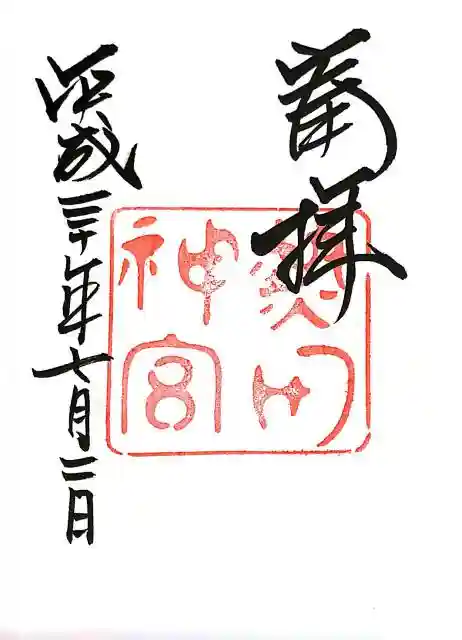 奉拝
神宮
平成三十年七月二日